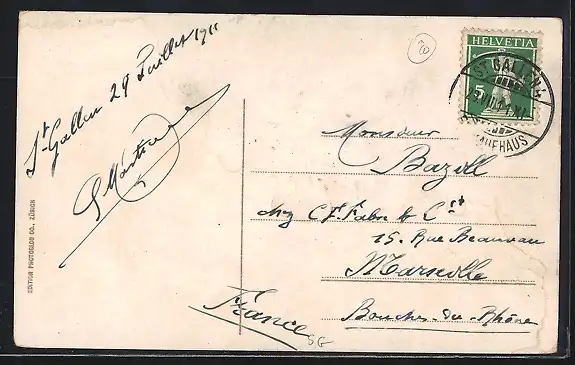 St Gallen 29 Juillet 1911
HELVETIA
5
ST. GALLEN 4
KAUFHAUS
Monsieur
Bazill
chez C. F. Fabre & Cie
15. Rue Beauvau
Marseille
Bouches-du-Rhône
France
EDITION PHOTOGLOB CO., ZÜRICH
SG